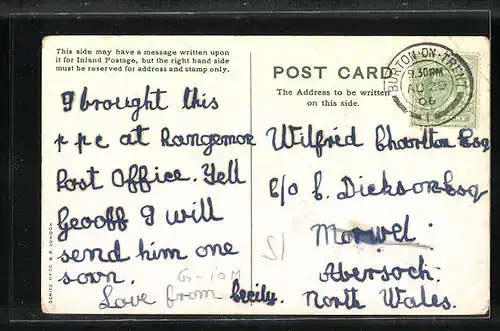 This side may have a message written upon
it for Inland Postage, but the right hand side
must be reserved for address and stamp only.
I brought this
p p c at Rangemor
Post Office. Yell
Geooff I will
send him one
soon.
Love from Cecily.
POST CARD
The Address to be written
on this side.
BURTON-ON-TRENT
9.30PM
AU 29
06
Wilfrid Charlton Esq
C/o C. Dickson Esq
Abersoch.
North Wales.